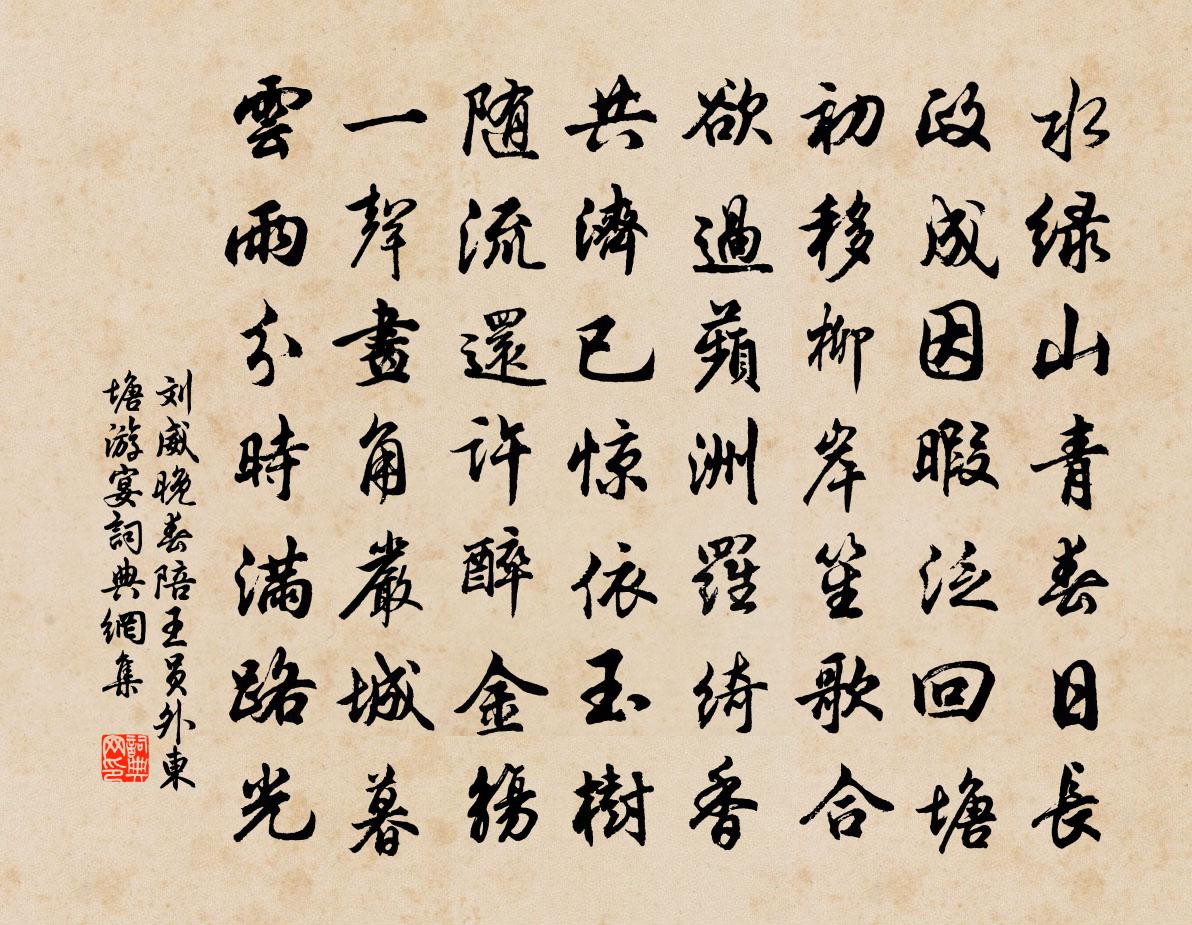 水緑山青春日長
政成因暇泛回塘
初移柳岸笙歌合
欲過蘋洲羅綺香
共濟已惊依玉樹
随流還許醉金觴
一聲畫角嚴城暮
雲雨分時满路光
刘威晚春陪王員外東
塘游宴詞典網集
詞典
网印